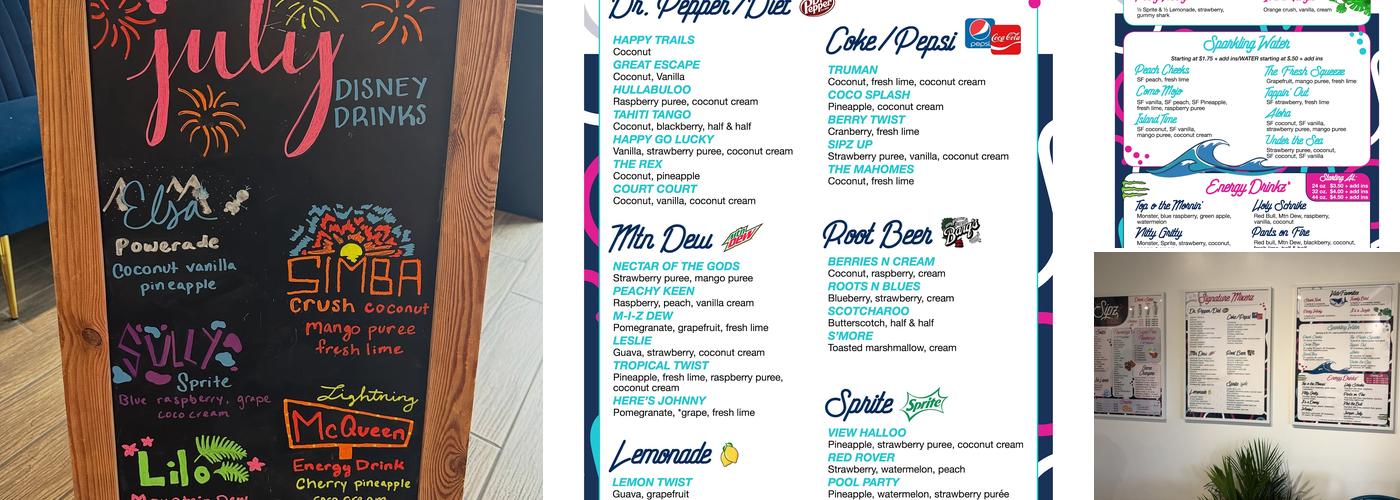 july
DISNEY
DRINKS
Elsa
Powerade
Coconut vanilla
pineapple
SIMBA
Crush coconut
mango puree
fresh lime
SULLY
Sprite
Blue raspberry, grape
coco cream
Lightning
McQueen
Energy Drink
Cherry pineapple
coco cream
Lilo
Mountain Dew
Dr. Pepper/Diet
Dr Pepper
HAPPY TRAILS
Coconut
GREAT ESCAPE
Coconut, Vanilla
HULLABULOO
Raspberry puree, coconut cream
TAHITI TANGO
Coconut, blackberry, half & half
HAPPY GO LUCKY
Vanilla, strawberry puree, coconut cream
THE REX
Coconut, pineapple
COURT COURT
Coconut, vanilla, coconut cream
Mtn Dew
Mtn DEW
NECTAR OF THE GODS
Strawberry puree, mango puree
PEACHY KEEN
Raspberry, peach, vanilla cream
M-I-Z DEW
Pomegranate, grapefruit, fresh lime
LESLIE
Guava, strawberry, coconut cream
TROPICAL TWIST
Pineapple, fresh lime, raspberry puree,
coconut cream
HERE'S JOHNNY
Pomegranate, *grape, fresh lime
Lemonade
LEMON TWIST
Guava, grapefruit
Coke/Pepsi
pepsi
Coca-Cola
TRUMAN
Coconut, fresh lime, coconut cream
COCO SPLASH
Pineapple, coconut cream
BERRY TWIST
Cranberry, fresh lime
SIPZ UP
Strawberry puree, vanilla, coconut cream
THE MAHOMES
Coconut, fresh lime
Root Beer
Barq's
BERRIES N CREAM
Coconut, raspberry, cream
ROOTS N BLUES
Blueberry, strawberry, cream
SCOTCHAROO
Butterscotch, half & half
S'MORE
Toasted marshmallow, cream
Sprite
Sprite
VIEW HALLOO
Pineapple, strawberry puree, coconut cream
RED ROVER
Strawberry, watermelon, peach
POOL PARTY
Pineapple, watermelon, strawberry purée
½ Sprite & ½ Lemonade, strawberry,
gummy shark
Orange crush, vanilla, cream
Sparkling Water
Starting at $1.75 + add ins/WATER starting at $.50 + add ins
Peach Cheeks
SF peach, fresh lime
Como Mojo
SF vanilla, SF peach, SF Pineapple,
fresh lime, raspberry puree
Island Time
SF coconut, SF vanilla,
mango puree, coconut cream
The Fresh Squeeze
Grapefruit, mango puree, fresh lime
Tappin' Out
SF strawberry, fresh lime
Aloha
SF coconut, SF vanilla,
strawberry puree, mango puree
Under the Sea
Strawberry puree, coconut,
SF coconut, SF vanilla
Energy Drinkz*
Starting At:
24 oz $3.50 + add ins
32 oz. $4.00 + add ins
44 oz. $4.50 + add ins
Top o the Mornin'
Monster, blue raspberry, green apple,
watermelon
Nitty Gritty
Monster, Sprite, strawberry, coconut,
Holy Schnike
Red Bull, Mtn Dew, raspberry,
vanilla, coconut
Pants on Fire
Red bull, Mtn Dew, blackberry, coconut
Sipz
Signature Mixers
Dr. Pepper/Diet
Coke/Pepsi
Mtn Dew
Root Beer
Lemonade
Sprite
Kids Favorites
Sparkling Water
Energy Drinkz